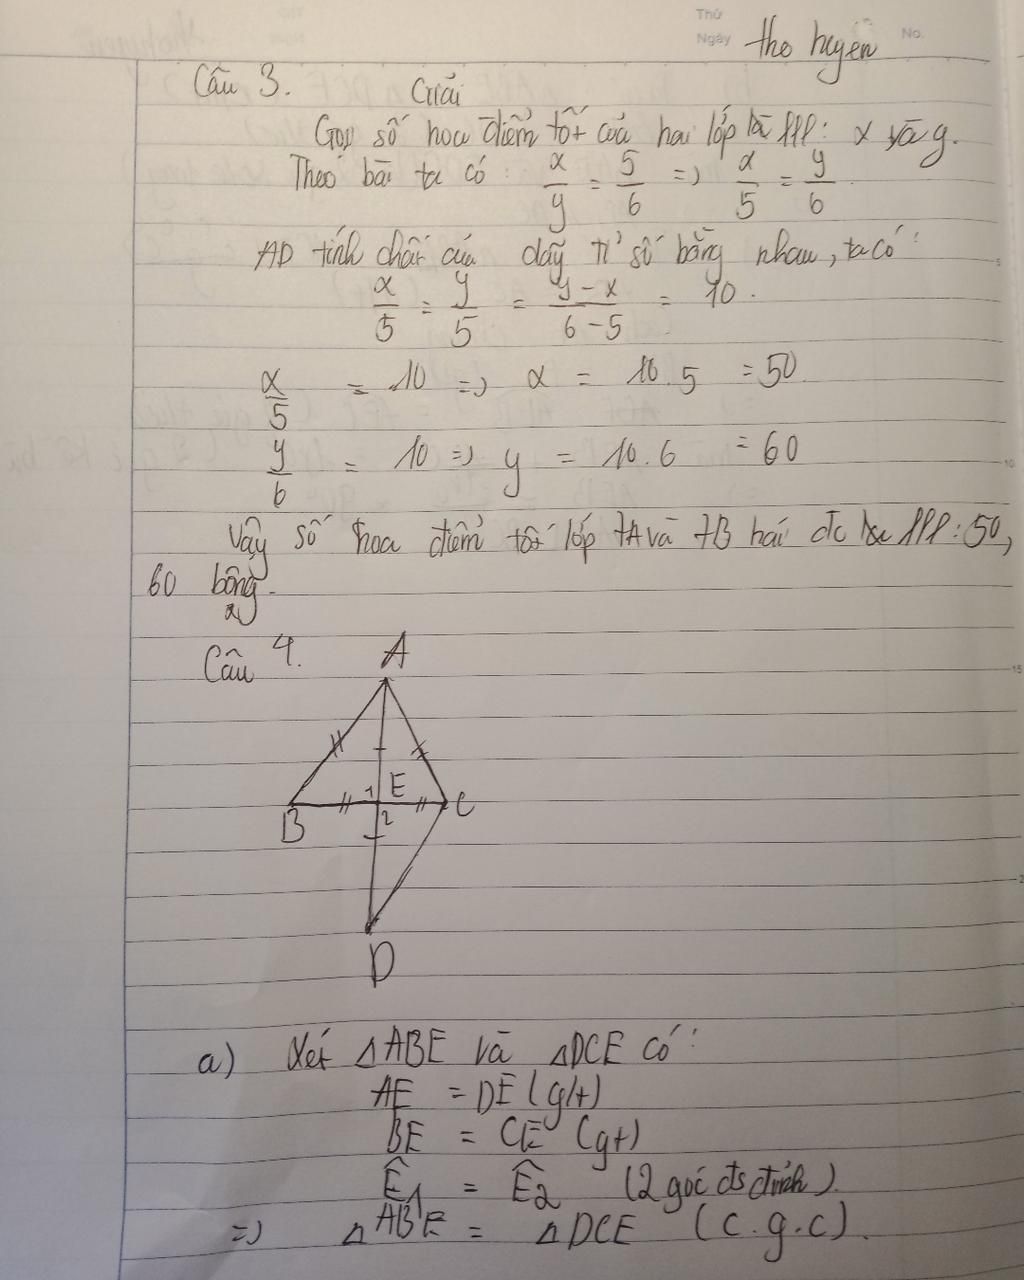 Thứ
Ngày
No.
tho huyền
Câu 3. Giải
Gọi số hoa điểm tốt của hai lớp là lll: x và y.
Theo bài ta có: x/y = 5/6 => x/5 = y/6
AD tính chất của dãy tỉ số bằng nhau, ta có:
x/5 = y/5 = y-x/6-5 = 10.
x/5 = 10 => x = 10.5 = 50
y/6 = 10 => y = 10.6 = 60
Vậy số hoa điểm tốt lớp 7A và 7B hái đc là lll: 50,
60 bông.
Câu 4.
A
1 E
B 2 C
D
a) Xét △ABE và △DCE có:
AE = DE (g/t)
BE = CE (gt)
Ê1 = Ê2 (2 góc đs đỉnh).
=> △ABE = △DCE (c.g.c).